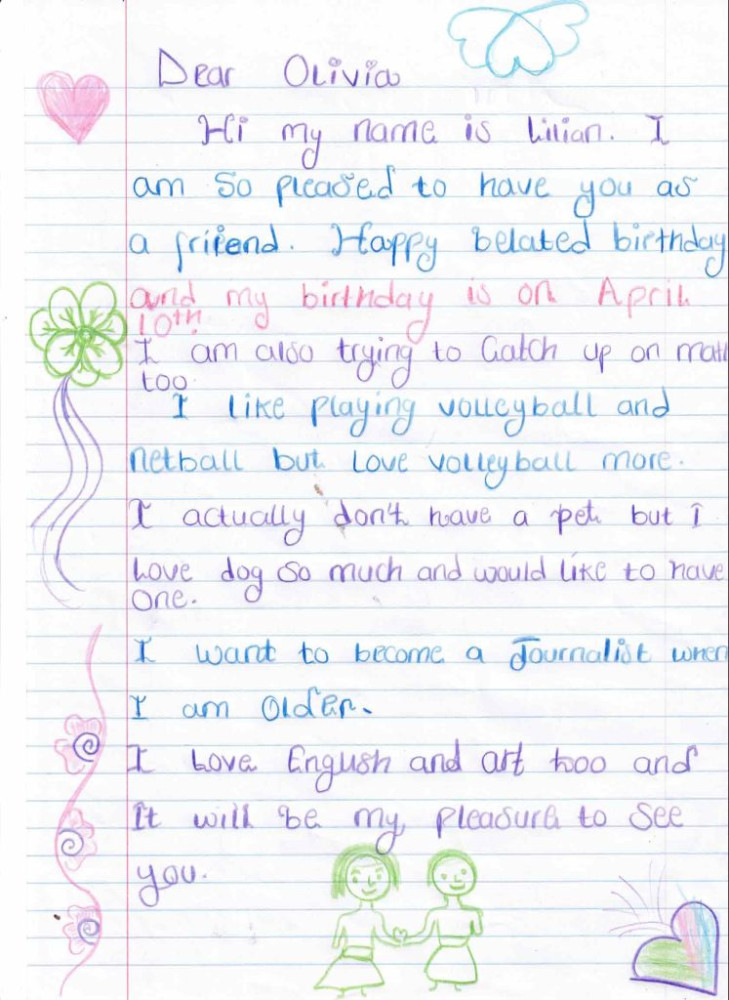 Dear Olivia
Hi my name is Lilian. I
am so pleased to have you as
a friend. Happy belated birthday
and my birthday is on April
10th.
I am also trying to Catch up on math
too.
I like playing volleyball and
netball but love volleyball more.
I actually don't have a pet but I
Love dog so much and would like to have
one.
I want to become a Journalist when
I am Older.
I Love English and art too and
It will be my pleasure to see
you.